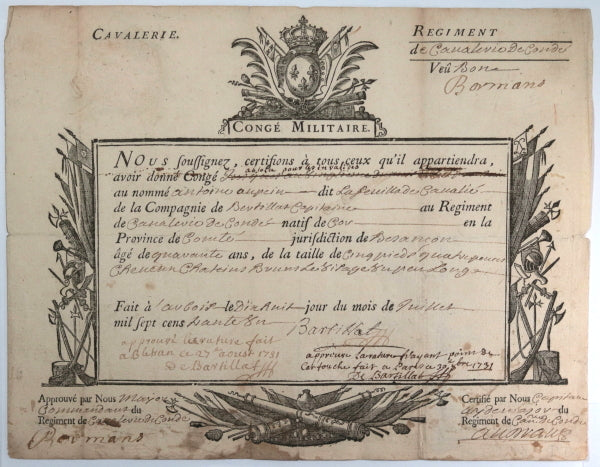 CAVALERIE.
REGIMENT
de Cavalerie De Condé
Veû Bon
Bormans
CONGÉ MILITAIRE.
NOUS soussignez, certifions à tous ceux qu'il appartiendra,
absolu pour les invalides
avoir donné Congé
au nommé antoine dit La feuillade Cavalier
de la Compagnie de Bertillat Capitaine au Regiment
de Cavalerie De Condé natif de en la
Province de Comté jurisdiction de Besançon
âgé de quarante ans, de la taille de Cinq pieds quatre pouces
Cheveux Chateins Bruns Le Visage un peu Long
Fait à le Dix huit jour du mois de Juillet
mil sept cens trante un
Bartillat
approuvé la rature fait
a ce 27e aoust 1731
De Bartillat
approuve la rature n'ayant point de
Cartouche fait a Paris ce 1731
De Bartillat
Approuvé par Nous Major
Commandant du
Regiment de Cavalerie de Condé
Bormans
Certifié par Nous Capitaine
Aydemajor du
Regiment de Cavrie De Condé